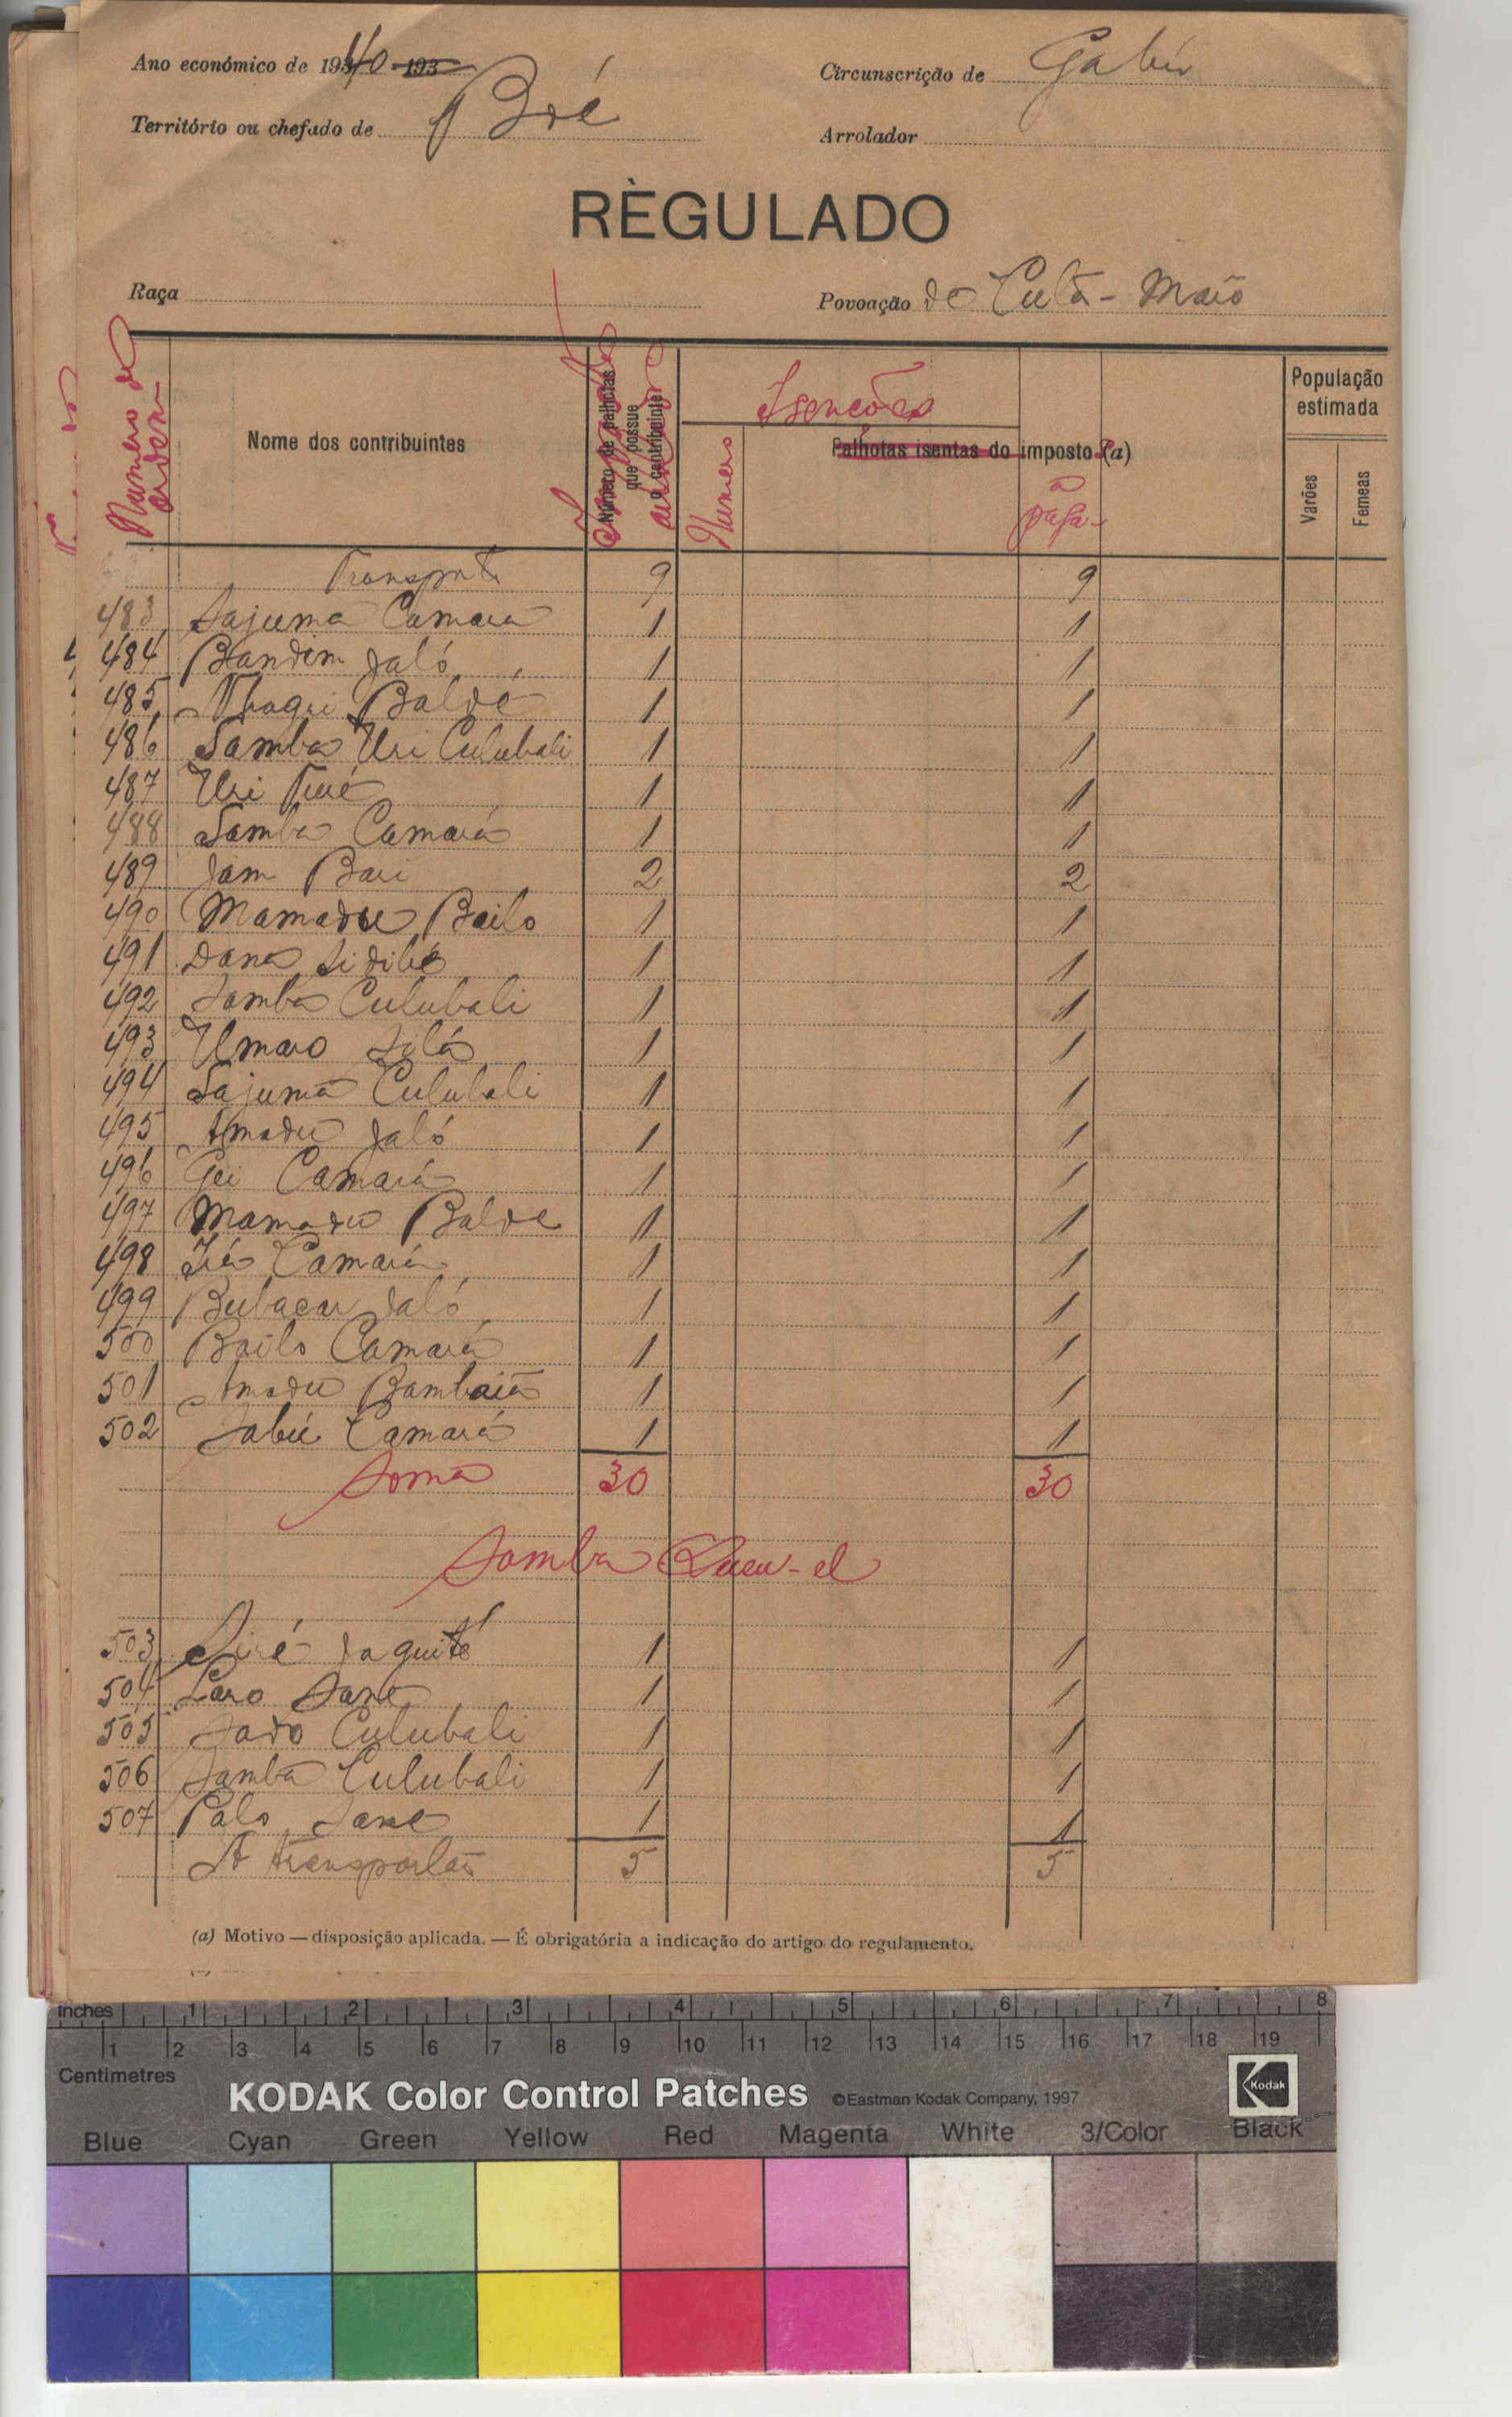 Ano económico de 1940
Circunscrição de Gabú
Território ou chefado de Boé
Arrolador
RÈGULADO
Raça
Povoação de Cutã-Maio
Numero de ordem
Nome dos contribuintes
Número de palhotas que possue o contribuinte
Isenções
Palhotas isentas do imposto (a)
Numeros
a paga
População estimada
Varões
Femeas
Transporte 9 9
483 Sajuma Camara 1 1
484 Bandim Jaló 1 1
485 Baldé 1 1
486 Samba Uri Culubali 1 1
487 Uri Turé 1 1
488 Samba Camará 1 1
489 Jam Bari 2 2
490 Mamadu Bailo 1 1
491 Dana Sidibé 1 1
492 Samba Culubali 1 1
493 Umaro Silá 1 1
494 Sajuma Culubali 1 1
495 Amadu Jaló 1 1
496 Gei Camará 1 1
497 Mamadu Balde 1 1
498 Camará 1 1
499 Bubacar Jaló 1 1
500 Bailo Camará 1 1
501 Amadu Bambaiã 1 1
502 Sabú Camará 1 1
Soma 30 30
Samba Queu-el
503 Siré Jaquité 1 1
504 Laro Sane 1 1
505 Sado Culubali 1 1
506 Samba Culubali 1 1
507 Palo Sane 1 1
A transportar 5 5
(a) Motivo — disposição aplicada. — É obrigatória a indicação do artigo do regulamento.
Inches 1 2 3 4 5 6 7 8
1 2 3 4 5 6 7 8 9 10 11 12 13 14 15 16 17 18 19
Centimetres
KODAK Color Control Patches ©Eastman Kodak Company, 1997 Kodak
Blue Cyan Green Yellow Red Magenta White 3/Color Black